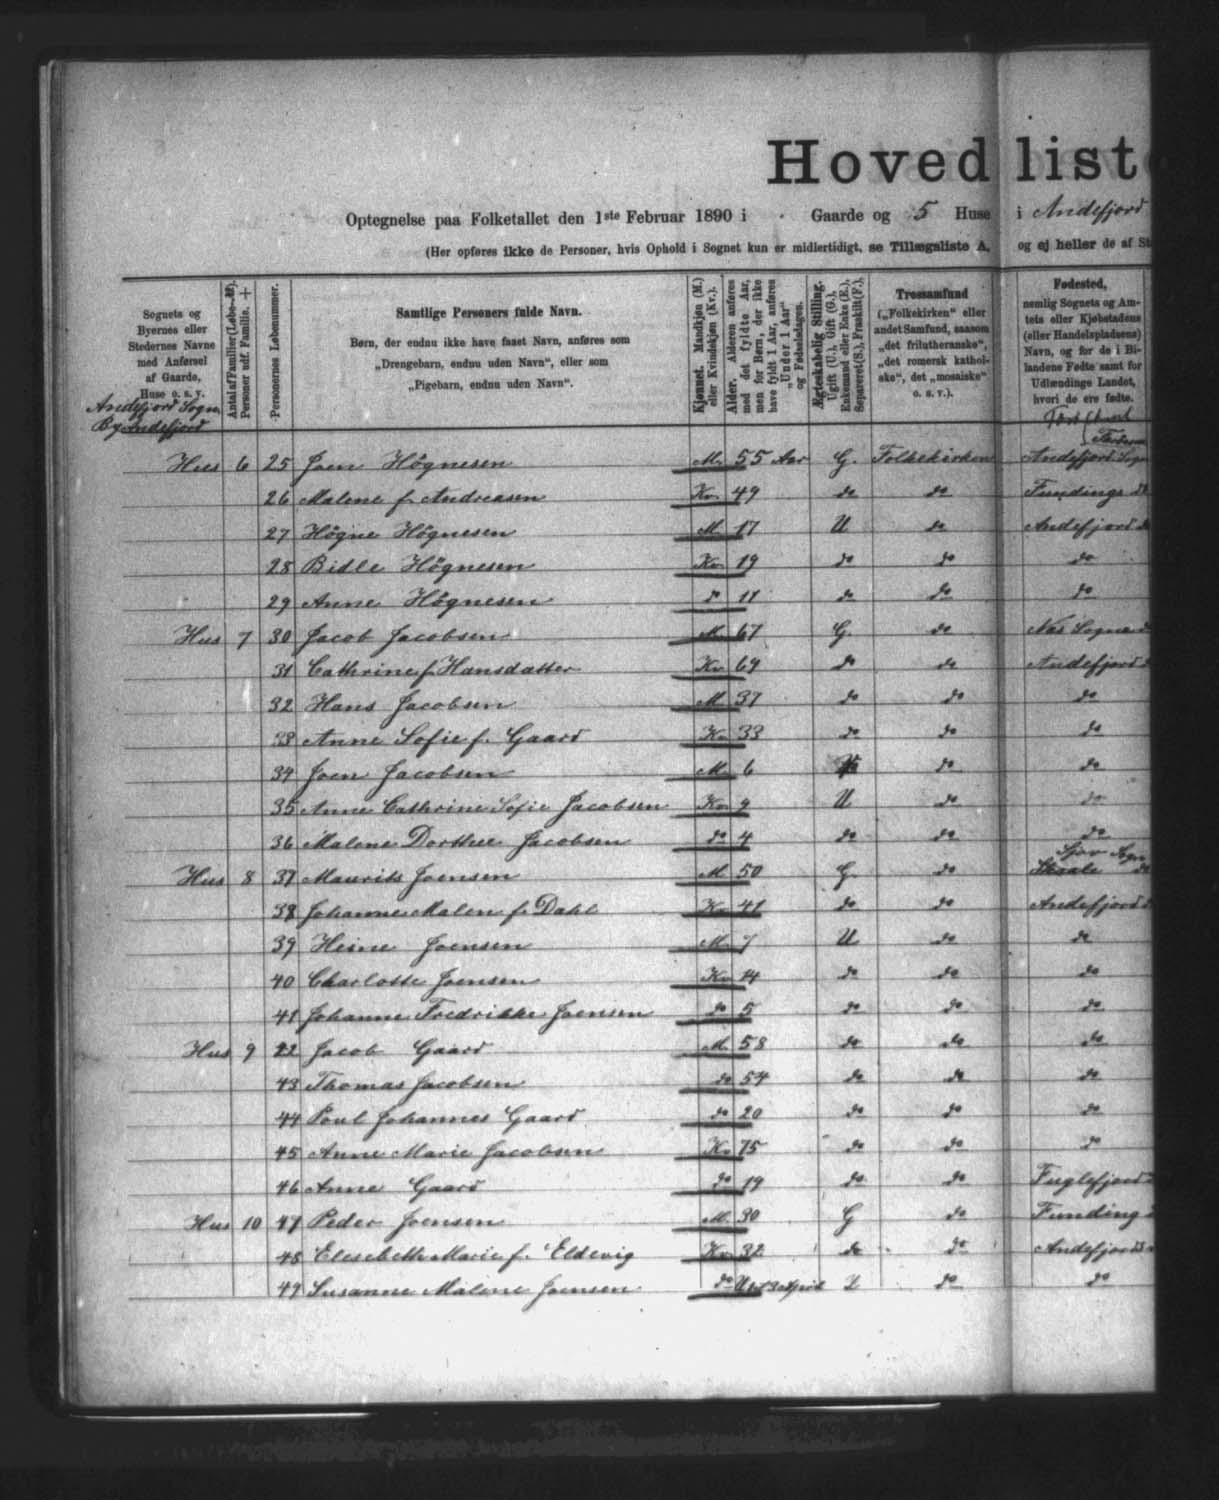 Hovedliste
Optegnelse paa Folketallet den 1ste Februar 1890 i Gaarde og 5 Huse i Andefjord
(Her opføres ikke de Personer, hvis Ophold i Sognet kun er midlertidigt, se Tillægsliste A, og ej heller de af St
Sognets og Byernes eller Stedernes Navne med Anførsel af Gaarde, Huse o. s. v.
Antal af Familier (Løbe-№). Personer udf. Familie. +
Personernes Løbenummer.
Samtlige Personers fulde Navn.
Børn, der endnu ikke have faaet Navn, anføres som
„Drengebarn, endnu uden Navn“, eller som
„Pigebarn, endnu uden Navn“.
Kjønnet. Mandkjøn (M.) eller Kvindekjøn (Kv.).
Alder. Alderen anføres med det fyldte Aar, men for Børn, der ikke have fyldt 1 Aar, anføres „Under 1 Aar“ og Fødselsdagen.
Ægteskabelig Stilling. Ugift (U.), Gift (G.), Enkemand eller Enke (E.), Separeret (S.), Fraskilt (F.).
Trossamfund
(„Folkekirken“ eller andet Samfund, saasom „det frilutheranske“, „det romersk katholske“, det „mosaiske“ o. s. v.).
Fødested,
nemlig Sognets og Amtets eller Kjøbstadens (eller Handelspladsens) Navn, og for de i Bilandene Fødte samt for Udlændinge Landet, hvori de ere fødte.
Andefjord Sogn
By Andefjord
Hus 6 25 Joen Högnesen M. 55 Aar G. Folkekirken Andefjord Sogn
26 Malene f. Andreasen Kv. 49 do do Fundings do
27 Högne Högnesen M. 17 U do Andefjord do
28 Bidle Högnesen Kv. 19 do do do
29 Anne Högnesen do 11 do do do
Hus 7 30 Jacob Jacobsen M. 67 G. do Næs Sogn do
31 Cathrine f. Hansdatter Kv. 69 do do Andefjord do
32 Hans Jacobsen M. 37 do do do
33 Anne Sofie f. Gaard Kv. 33 do do do
34 Joen Jacobsen M. 6 do do
35 Anne Cathrine Sofie Jacobsen Kv. 9 U do do
36 Malene Dorthee Jacobsen do 4 do do do
Hus 8 37 Maurits Joensen M. 50 G. do Skaale Sogn do
38 Johanne Malen f. Dahl Kv. 41 do do Andefjord do
39 Heine Joensen M. 7 U do do
40 Charlotte Joensen Kv. 14 do do do
41 Johanne Fredrikke Joensen do 5 do do do
Hus 9 22 Jacob Gaard M. 58 do do do
43 Thomas Jacobsen do 54 do do do
44 Poul Johannes Gaard do 20 do do do
45 Anne Marie Jacobsen Kv. 75 do do do
46 Anne Gaard do 19 do do Fuglefjord
Hus 10 47 Peder Joensen M. 30 G do Funding
48 Elesebeth Marie f. Eldevig Kv. 32 do do Andefjords
49 Susanne Malene Joensen do April U do do